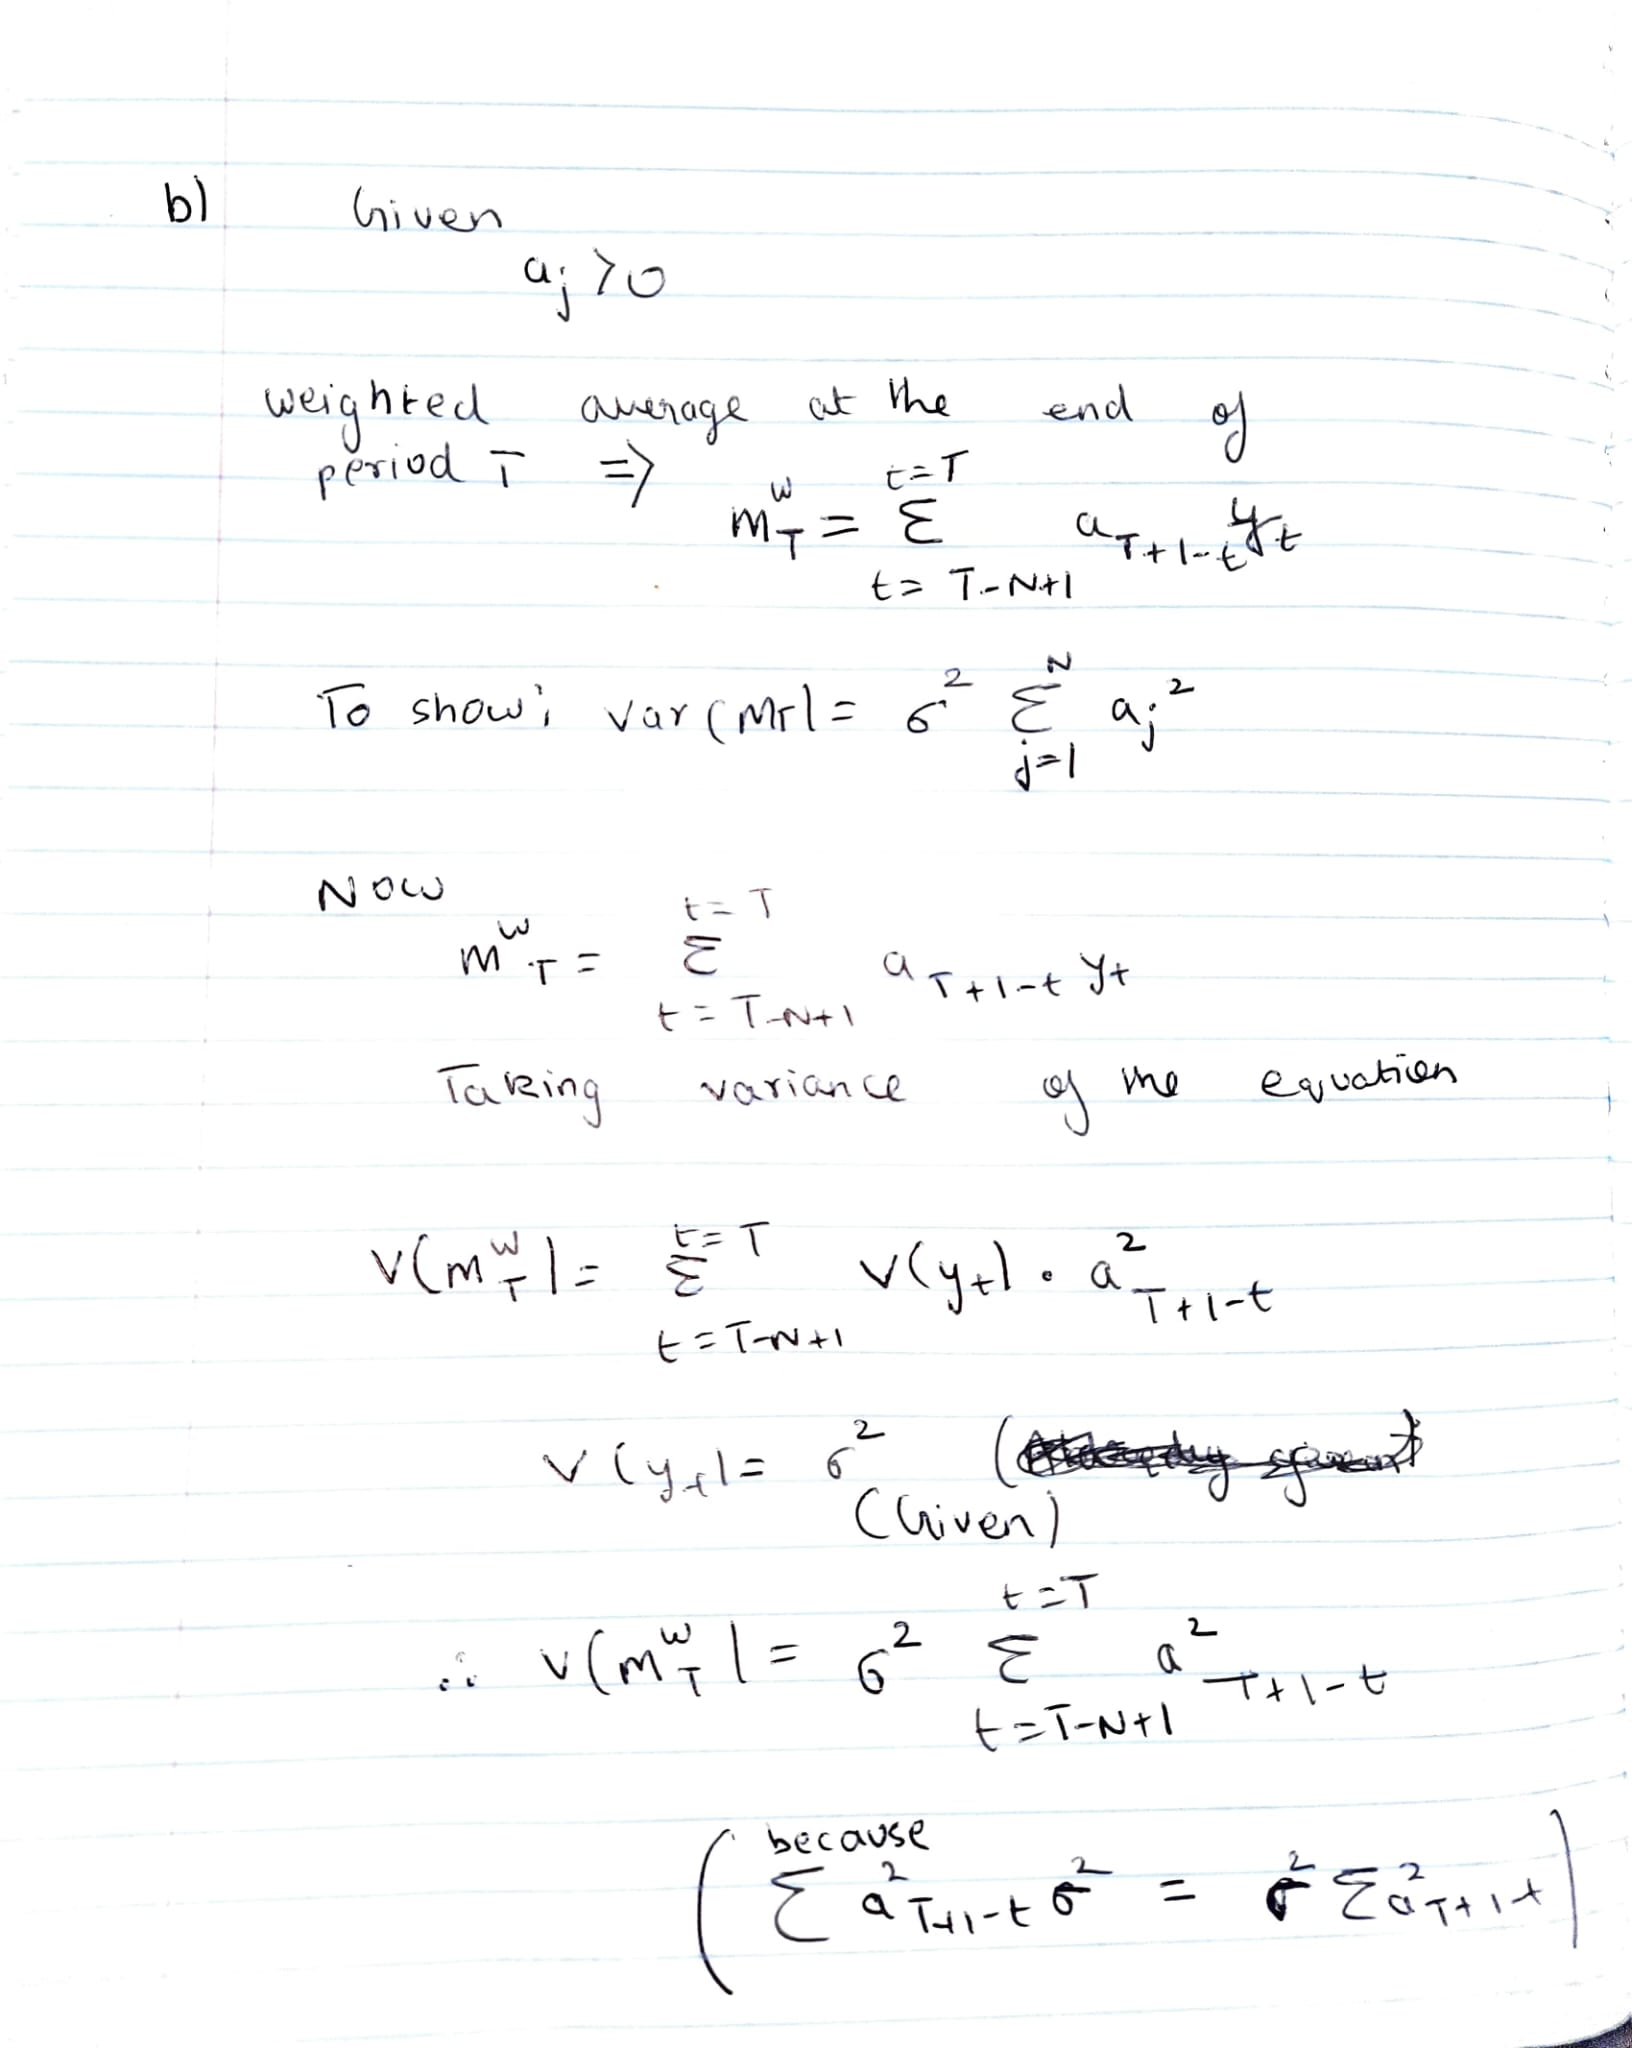 b) Given
a_j > 0
weighted average at the end of
period T ⇒
m_T^w = Σ_{t=T-N+1}^{t=T} a_{T+1-t} y_t
To show: var(M_T) = σ² Σ_{j=1}^{N} a_j²
Now
m^w_T = Σ_{t=T-N+1}^{t=T} a_{T+1-t} y_t
Taking variance of the equation
V(m_T^w) = Σ_{t=T-N+1}^{t=T} V(y_t) · a²_{T+1-t}
V(y_t) = σ² (
(Given)
∴ V(m_T^w) = σ² Σ_{t=T-N+1}^{t=T} a²_{T+1-t}
(because
Σ a²_{T+1-t} σ² = σ² Σ a²_{T+1-t})